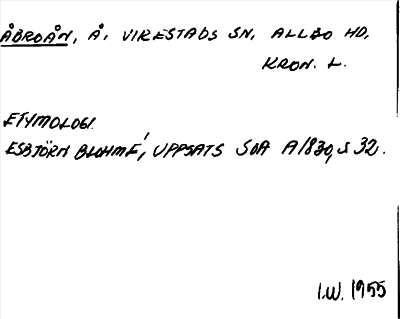 ÅBROÅN, Å, VIRESTADS SN, ALLBO HD,
KRON. L.
ETYMOLOGI.
ESBJÖRN BLOHMÉ, UPPSATS SOA A1830, S 32.
I.W. 1955